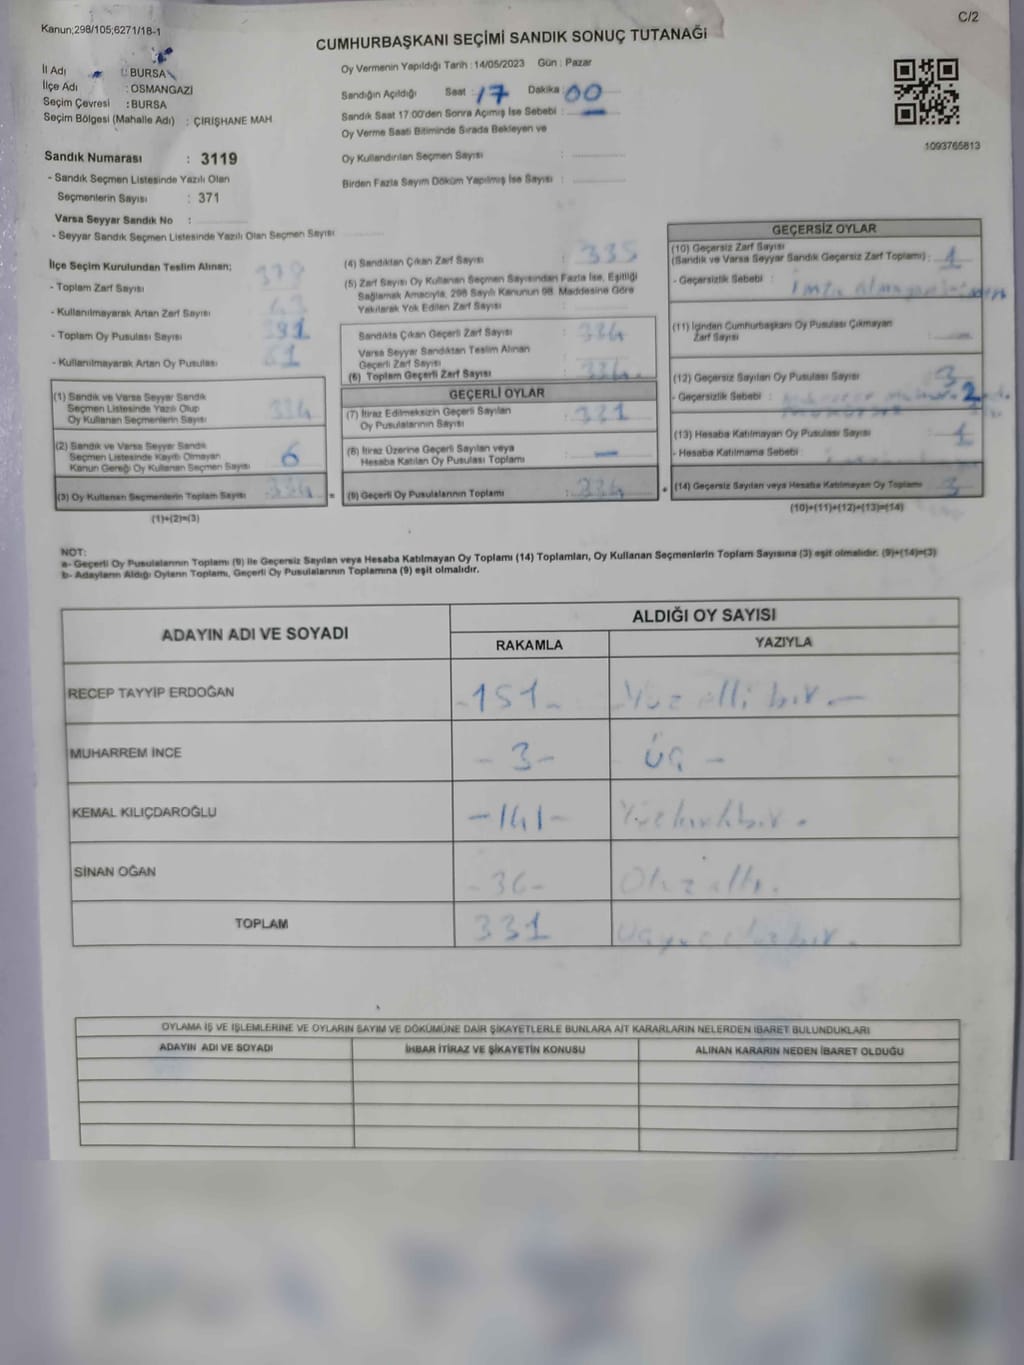 Kanun;298/105;6271/18-1
C/2
CUMHURBAŞKANI SEÇİMİ SANDIK SONUÇ TUTANAĞI
İl Adı : BURSA
İlçe Adı : OSMANGAZİ
Seçim Çevresi : BURSA
Seçim Bölgesi (Mahalle Adı) : ÇIRIŞHANE MAH
Oy Vermenin Yapıldığı Tarih : 14/05/2023 Gün : Pazar
Sandığın Açıldığı Saat : 17 Dakika : 00
Sandık Saat 17:00'den Sonra Açımış İse Sebebi : —
Oy Verme Saati Bitiminde Sırada Bekleyen ve
Oy Kullandırılan Seçmen Sayısı :
Birden Fazla Sayım Döküm Yapılmış İse Sayısı :
1093765813
Sandık Numarası : 3119
- Sandık Seçmen Listesinde Yazılı Olan
Seçmenlerin Sayısı : 371
Varsa Seyyar Sandık No :
- Seyyar Sandık Seçmen Listesinde Yazılı Olan Seçmen Sayısı
İlçe Seçim Kurulundan Teslim Alınan;
- Toplam Zarf Sayısı
- Kullanılmayarak Artan Zarf Sayısı
- Toplam Oy Pusulası Sayısı
- Kullanılmayarak Artan Oy Pusulası
(1) Sandık ve Varsa Seyyar Sandık
Seçmen Listesinde Yazılı Olup
Oy Kullanan Seçmenlerin Sayısı : 334
(2) Sandık ve Varsa Seyyar Sandık
Seçmen Listesinde Kayıtlı Olmayan
Kanun Gereği Oy Kullanan Seçmen Sayısı 6
(3) Oy Kullanan Seçmenlerin Toplam Sayısı : 334 =
(1)+(2)=(3)
(4) Sandıktan Çıkan Zarf Sayısı : 335
(5) Zarf Sayısı Oy Kullanan Seçmen Sayısından Fazla İse, Eşitliği
Sağlamak Amacıyla, 298 Sayılı Kanunun 98. Maddesine Göre
Yakılarak Yok Edilen Zarf Sayısı :
Sandıkta Çıkan Geçerli Zarf Sayısı : 334
Varsa Seyyar Sandıktan Teslim Alınan
Geçerli Zarf Sayısı
(6) Toplam Geçerli Zarf Sayısı : 334
GEÇERLİ OYLAR
(7) İtiraz Edilmeksizin Geçerli Sayılan
Oy Pusulalarının Sayısı : 331
(8) İtiraz Üzerine Geçerli Sayılan veya
Hesaba Katılan Oy Pusulası Toplamı : —
(9) Geçerli Oy Pusulalarının Toplamı : 334 +
GEÇERSİZ OYLAR
(10) Geçersiz Zarf Sayısı
(Sandık ve Varsa Seyyar Sandık Geçersiz Zarf Toplamı) : 1
- Geçersizlik Sebebi :
(11) İçinden Cumhurbaşkanı Oy Pusulası Çıkmayan
Zarf Sayısı : —
(12) Geçersiz Sayılan Oy Pusulası Sayısı : 3
- Geçersizlik Sebebi : 2
(13) Hesaba Katılmayan Oy Pusulası Sayısı : 1
- Hesaba Katılmama Sebebi :
(14) Geçersiz Sayılan veya Hesaba Katılmayan Oy Toplamı 3
(10)+(11)+(12)+(13)=(14)
NOT:
a- Geçerli Oy Pusulalarının Toplamı (9) ile Geçersiz Sayılan veya Hesaba Katılmayan Oy Toplamı (14) Toplamları, Oy Kullanan Seçmenlerin Toplam Sayısına (3) eşit olmalıdır. (9)+(14)=(3)
b- Adayların Aldığı Oyların Toplamı, Geçerli Oy Pusulalarının Toplamına (9) eşit olmalıdır.
ADAYIN ADI VE SOYADI ALDIĞI OY SAYISI
RAKAMLA YAZIYLA
RECEP TAYYİP ERDOĞAN -151- Yüz elli bir. —
MUHARREM İNCE - 3 - Üç -
KEMAL KILIÇDAROĞLU -141- Yüz kırk bir.
SİNAN OĞAN -36- Otuz altı.
TOPLAM 331 Üçyüz otuz bir.
OYLAMA İŞ VE İŞLEMLERİNE VE OYLARIN SAYIM VE DÖKÜMÜNE DAİR ŞİKAYETLERLE BUNLARA AİT KARARLARIN NELERDEN İBARET BULUNDUKLARI
ADAYIN ADI VE SOYADI İHBAR İTİRAZ VE ŞİKAYETİN KONUSU ALINAN KARARIN NEDEN İBARET OLDUĞU